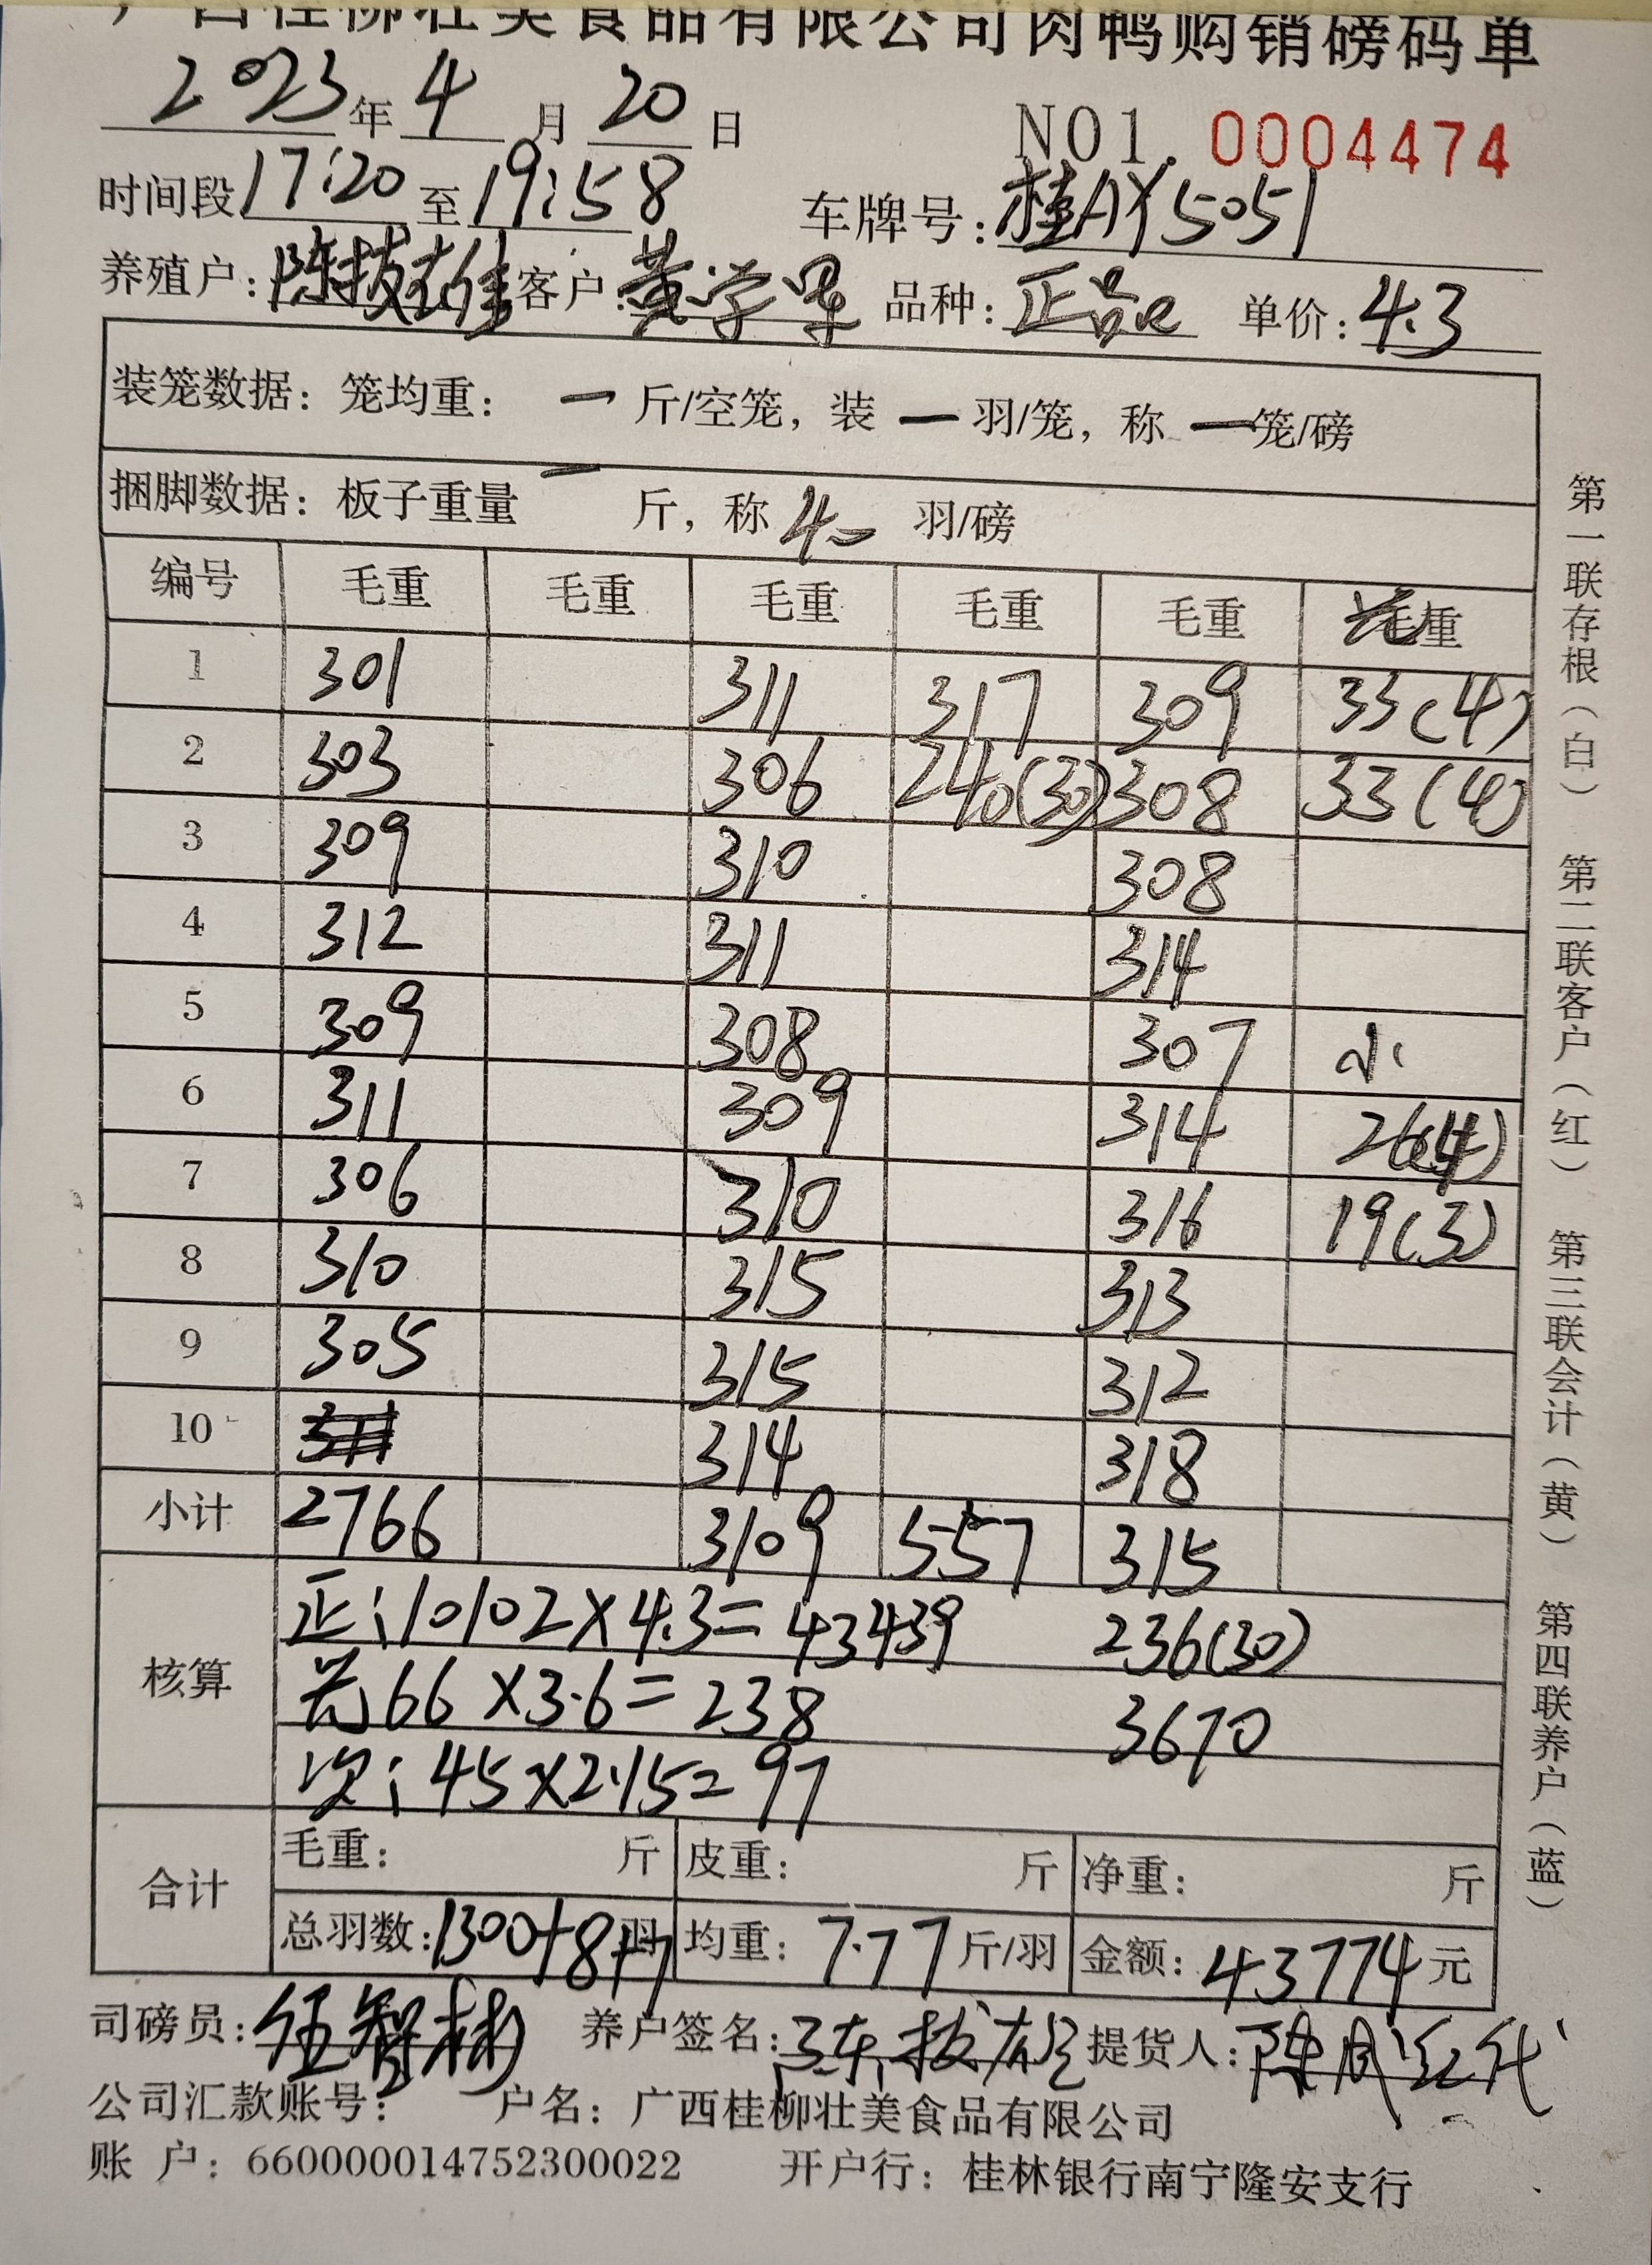 广西桂柳壮美食品有限公司肉鸭购销磅码单
2023年4月20日 NO1.0004474
时间段17:20至19:58 车牌号:桂AY5051
养殖户:陈技雄 客户:黄学军 品种:正品 单价:4.3
装笼数据:笼均重: 一 斤/空笼,装 一 羽/笼,称 一笼/磅
捆脚数据:板子重量 一 斤,称 40 羽/磅
编号 毛重 毛重 毛重 毛重 毛重 毛重
1 301 311 317 309 33(4)
2 303 306 240(30) 308 33(4)
3 309 310 308
4 312 311 314
5 309 308 307 小
6 311 309 314 26(4)
7 306 310 316 19(3)
8 310 315 313
9 305 315 312
10 314 318
小计 2766 3109 557 315
核算 正:10102×4.3=43439 236(30)
66×3.6=238 3670
次:45×2.15=97
合计 毛重: 斤 皮重: 斤 净重: 斤
总羽数:1300+8+7羽 均重:7.77斤/羽 金额:43774元
司磅员:伍智彬 养户签名:陈技雄 提货人:陈凤红代
公司汇款账号: 户名:广西桂柳壮美食品有限公司
账 户:660000014752300022 开户行:桂林银行南宁隆安支行
第一联存根(白) 第二联客户(红) 第三联会计(黄) 第四联养户(蓝)